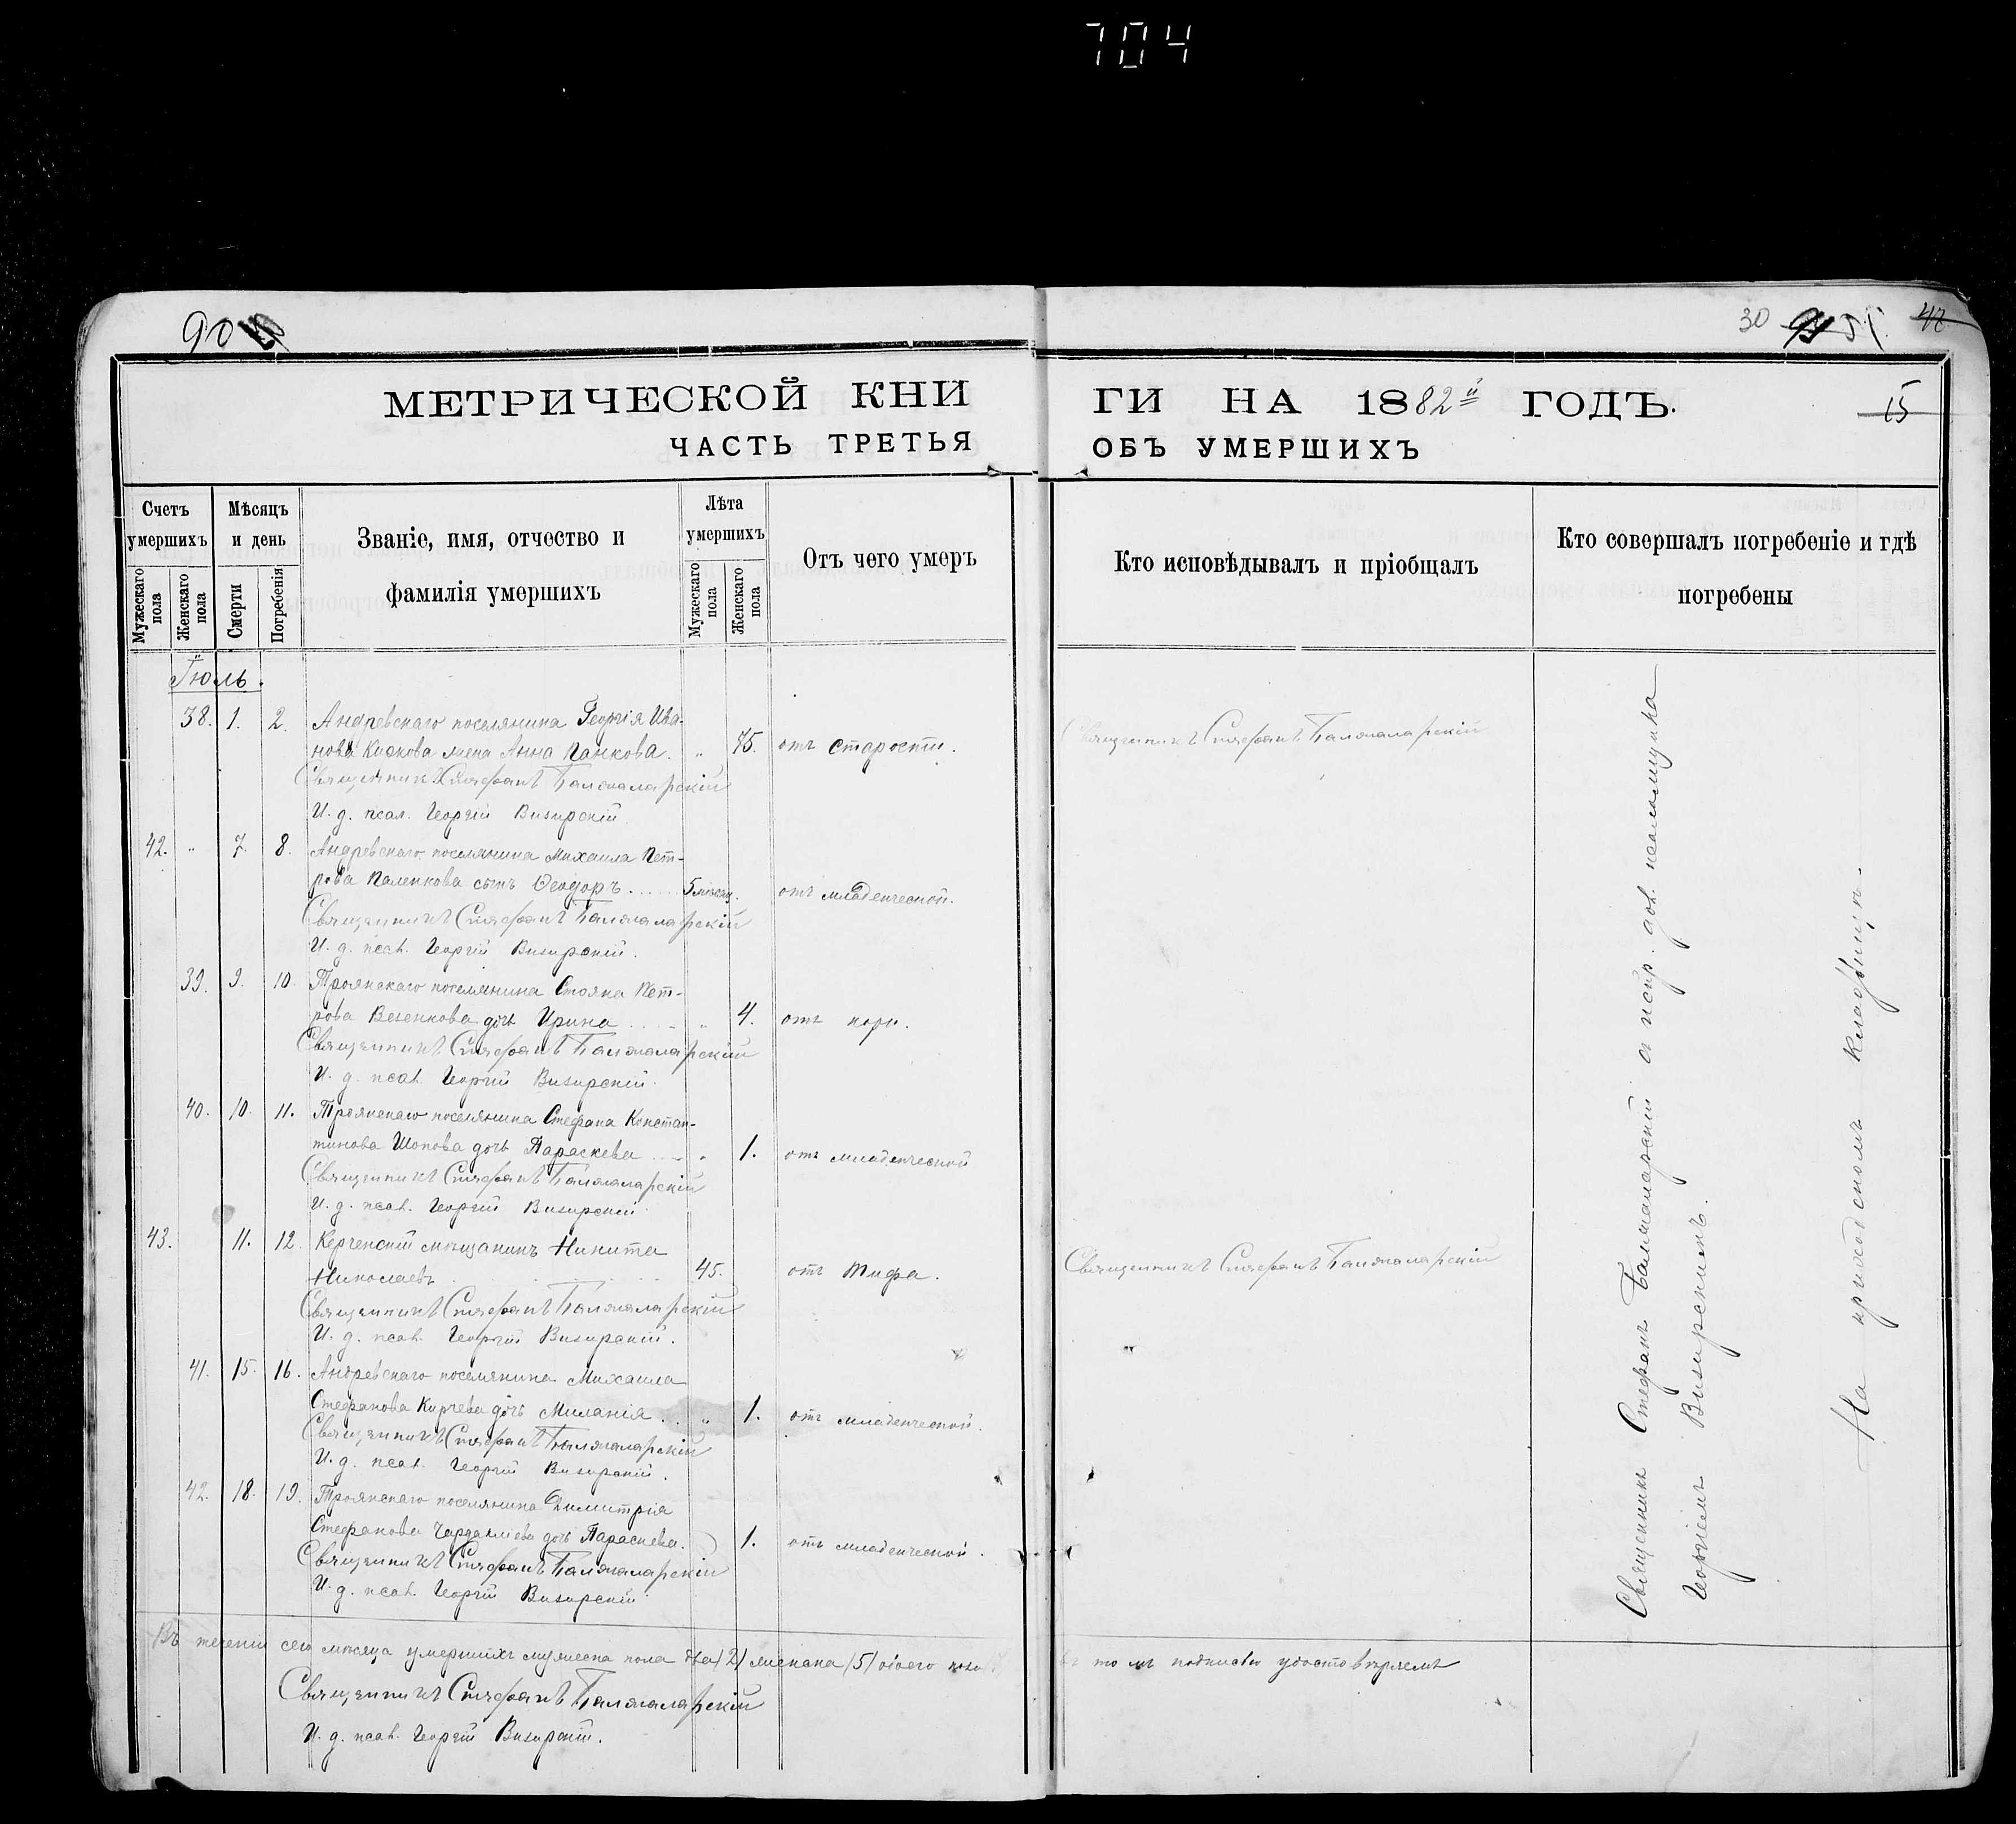 704
90
30 91 51. 42
МЕТРИЧЕСКОЙ КНИГИ НА 1882й ГОДЪ.
15
ЧАСТЬ ТРЕТЬЯ ОБЪ УМЕРШИХЪ
Счетъ умершихъ
Мѣсяцъ и день
Званіе, имя, отчество и фамилія умершихъ
Лѣта умершихъ
Отъ чего умеръ
Кто исповѣдывалъ и пріобщалъ
Кто совершалъ погребеніе и гдѣ погребены
Мужескаго пола
Женскаго пола
Смерти
Погребенія
Мужескаго пола
Женскаго пола
Іюль.
38. 1. 2. Андревскаго поселянина Георгія Ива-
нова жена Анна Панкова. „ 85. отъ старости. Священникъ Стефанъ Балжаларскій
Священникъ Стефанъ Балжаларскій
И. д. псал. Георгій Визирскій.
42. „ 7. 8. Андревскаго поселянина Михаила Пет-
рова Паленкова сынъ Ѳеодоръ 5 мѣсяц. отъ младенческой.
Священникъ Стефанъ Балжаларскій
И. д. псал. Георгій Визирскій.
39. 9. 10. Троянскаго поселянина Стояна Пет-
рова Везенкова дочь Ирина „ 4. отъ кори.
Священникъ Стефанъ Балжаларскій
И. д. псал. Георгій Визирскій.
40. 10. 11. Троянскаго поселянина Стефана Констан-
тинова Шопова дочь Параскева „ 1. отъ младенческой
Священникъ Стефанъ Балжаларскій
И. д. псал. Георгій Визирскій.
43. 11. 12. Керченскій мѣщанинъ Никита
Николаевъ 45. отъ тифа. Священникъ Стефанъ Балжаларскій
Священникъ Стефанъ Балжаларскій
И. д. псал. Георгій Визирскій.
41. 15. 16. Андревскаго поселянина Михаила
Стефанова Кирчева дочь Миланія „ 1. отъ младенческой.
Священникъ Стефанъ Балжаларскій
И. д. псал. Георгій Визирскій.
42. 18. 19. Троянскаго поселянина Димитрія
Стефанова Чардаклиева дочь Параскева. 1. отъ младенческой.
Священникъ Стефанъ Балжаларскій
И. д. псал. Георгій Визирскій.
Въ теченіи сего мѣсяца умершихъ мужеска пола два /2/ женска /5/ обоего пола
въ томъ подписью удостовѣряемъ
Священникъ Стефанъ Балжаларскій
И. д. псал. Георгій Визирскій.
Священникъ Стефанъ Балжаларскій съ испр. дол. псаломщика
Георгіемъ Визирскимъ.
На приходскомъ кладбищѣ.